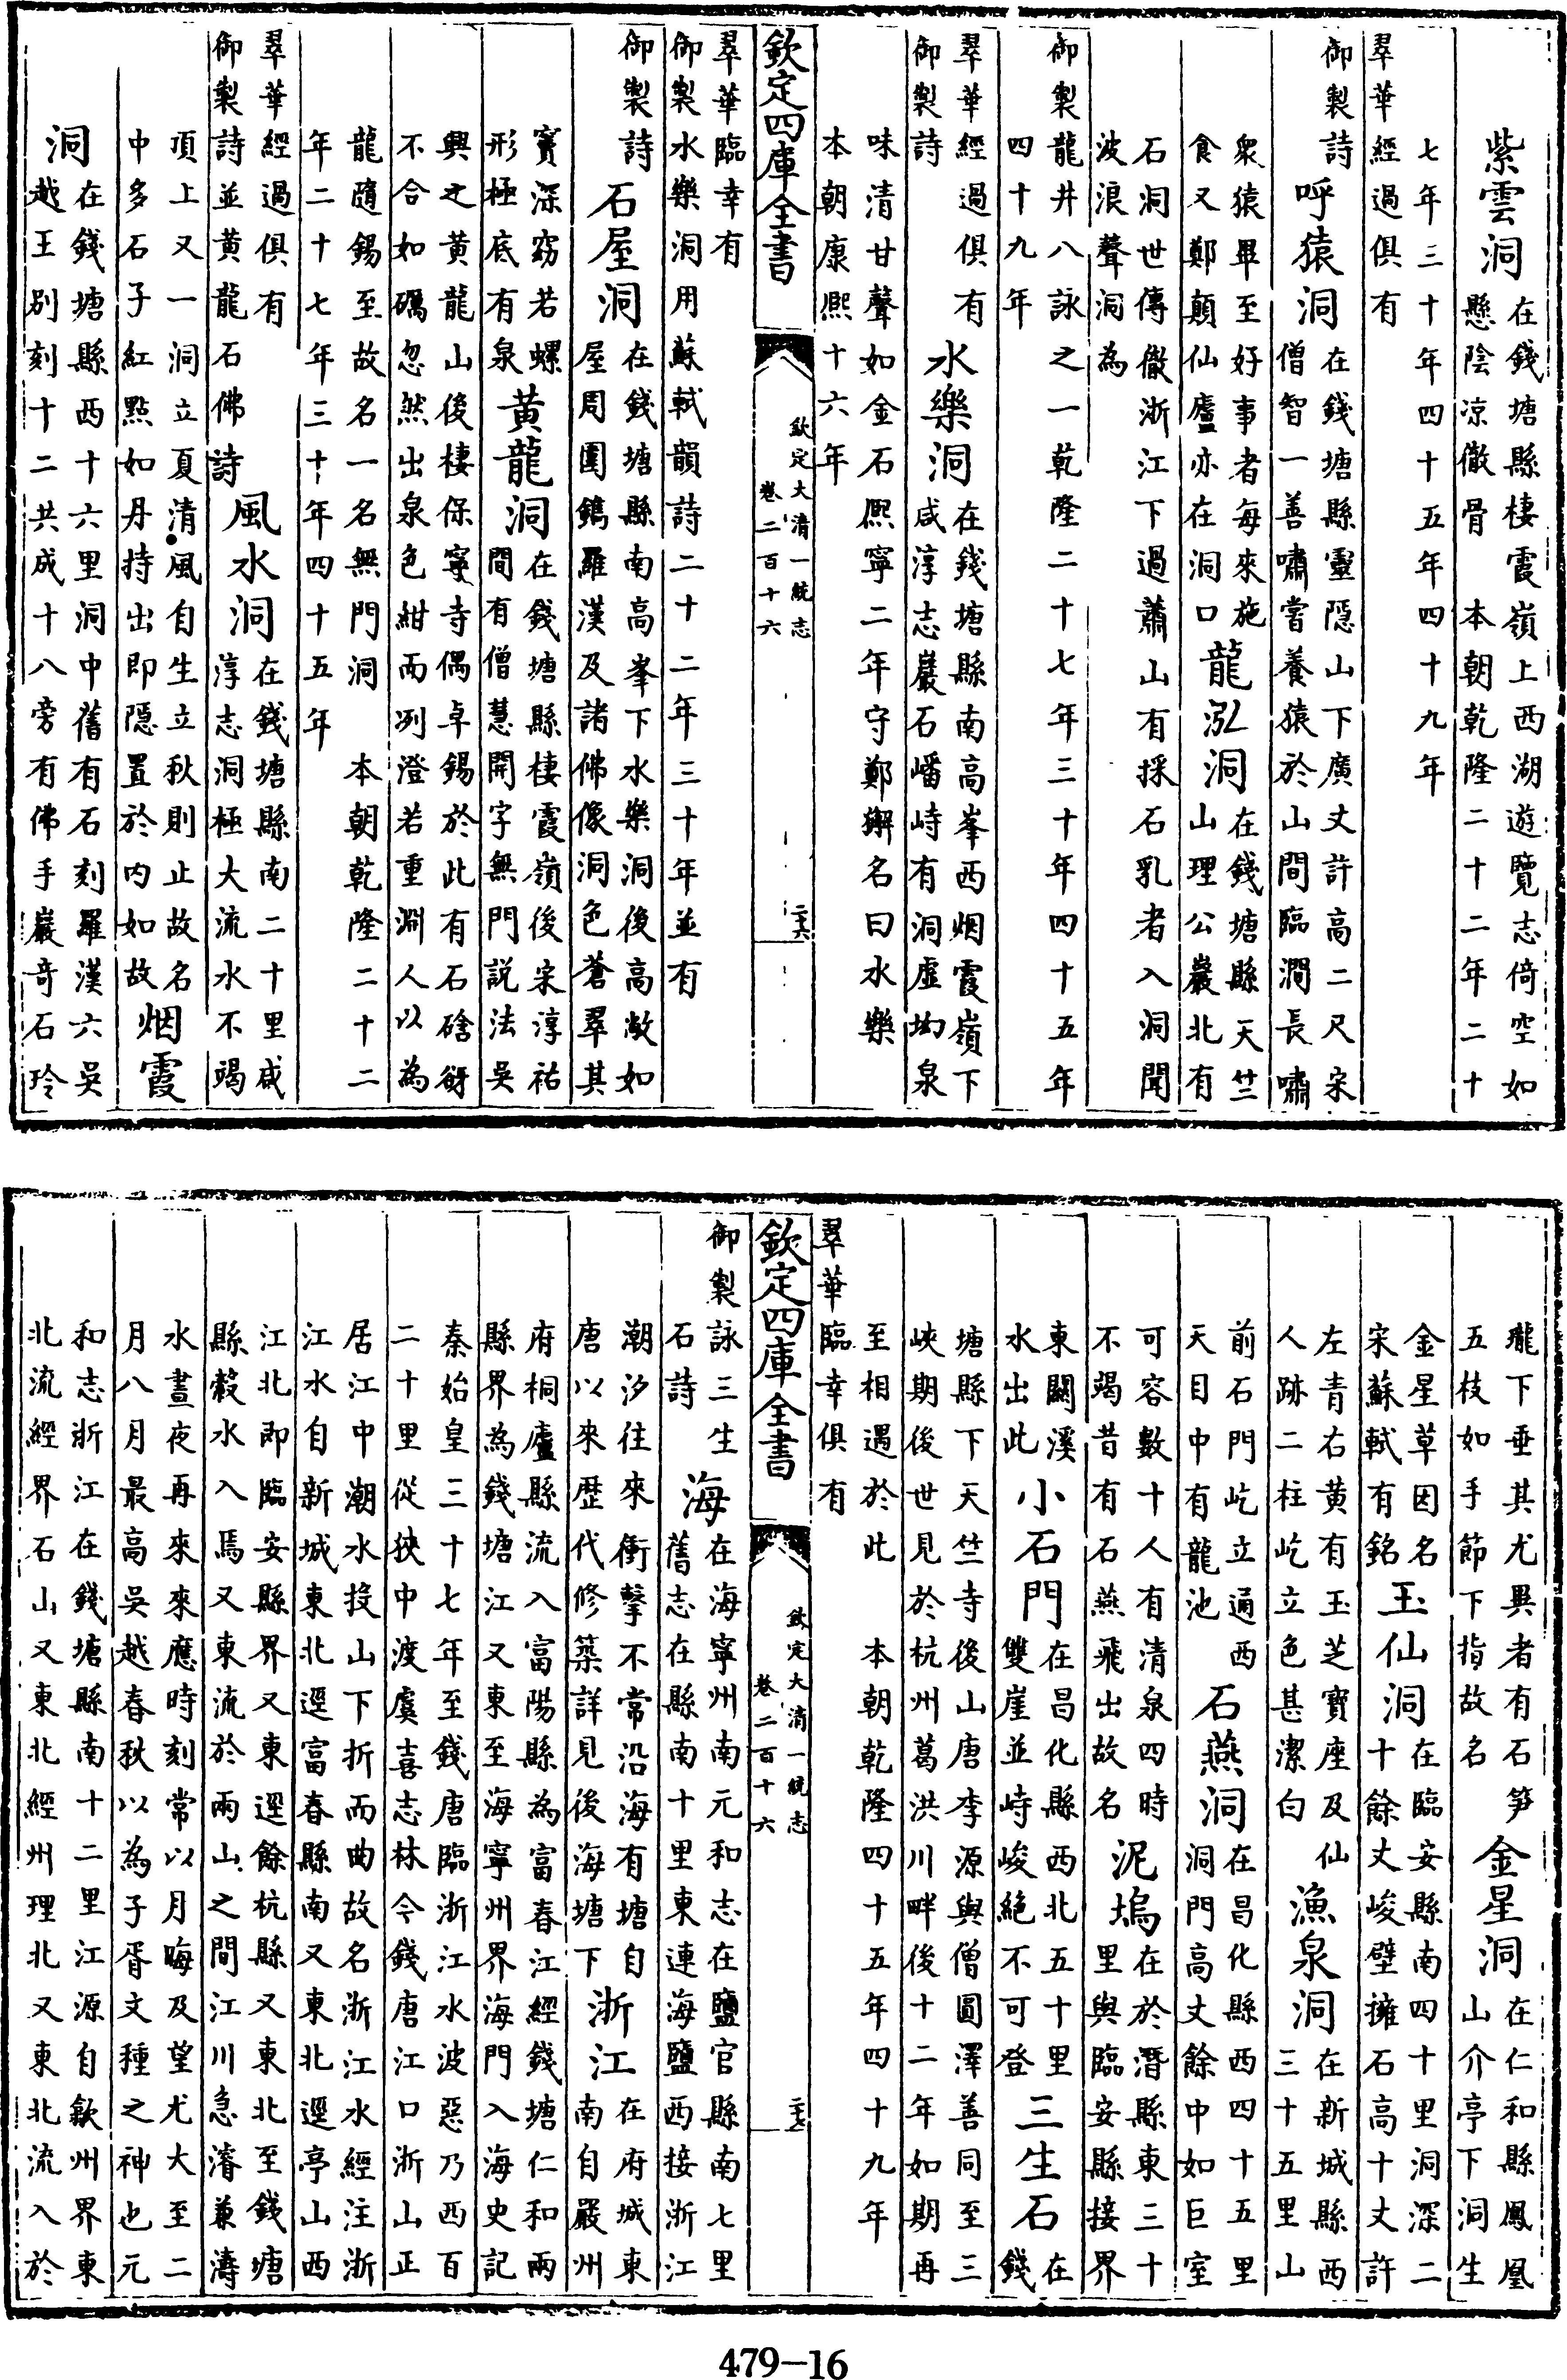 紫雲洞
在錢塘縣棲霞嶺上西湖遊覽志倚空如
懸陰凉徹骨　本朝乾隆二十二年二十
七年三十年四十五年四十九年
翠華經過俱有
御製詩
呼猿洞
在錢塘縣靈隐山下廣丈許高二尺宋
僧智一善嘯嘗養猿於山間臨澗長嘯
衆猿畢至好事者每來施
食又鄭顛仙廬亦在洞口
龍泓洞
在錢塘縣天竺
山理公巖北有
石洞世傳徹浙江下過蕭山有採石乳者入洞聞
波浪聲洞為
御製龍井八詠之一乾隆二十七年三十年四十五年
四十九年
翠華經過俱有
御製詩
水樂洞
在錢塘縣南高峯西烟霞嶺下
咸淳志巖石皤峙有洞虛坳泉
味清甘聲如金石熙寧二年守鄭獬名曰水樂
本朝康熙十六年
欽定四庫全書
欽定大清一統志
卷二百十六
二六
翠華臨幸有
御製水樂洞用蘇軾韻詩二十二年三十年並有
御製詩
石屋洞
在錢塘縣南高峯下水樂洞後高敞如
屋周圍鐫羅漢及諸佛像洞色蒼翠其
竇深窈若螺
形極底有泉
黄龍洞
在錢塘縣棲霞嶺後宋淳祐
間有僧慧開字無門説法吳
興之黄龍山後棲保寧寺偶卓錫於此有石硆谺
不合如礪忽然出泉色紺而冽澄若重淵人以為
龍隨錫至故名一名無門洞　本朝乾隆二十二
年二十七年三十年四十五年
翠華經過俱有
御製詩並黄龍石佛詩
風水洞
在錢塘縣南二十里咸
淳志洞極大流水不竭
頂上又一洞立夏清風自生立秋則止故名
中多石子紅點如丹持出即隠置於内如故
烟霞
洞
在錢塘縣西十六里洞中舊有石刻羅漢六吳
越王别刻十二共成十八旁有佛手巖竒石玲
瓏下垂其尤異者有石笋
五枝如手節下指故名
金星洞
在仁和縣鳳凰
山介亭下洞生
金星草因名
宋蘇軾有銘
玉仙洞
在臨安縣南四十里洞深二
十餘丈峻壁擁石高十丈許
左青右黄有玉芝寶座及仙
人跡二柱屹立色甚潔白
漁泉洞
在新城縣西
三十五里山
前石門屹立通西
天目中有龍池
石燕洞
在昌化縣西四十五里
洞門高丈餘中如巨室
可容數十人有清泉四時
不竭昔有石燕飛出故名
泥塢
在於潛縣東三十
里與臨安縣接界
東關溪
水出此
小石門
在昌化縣西北五十里
雙崖並峙峻絶不可登
三生石
在
錢
塘縣下天竺寺後山唐李源與僧圓澤善同至三
峽期後世見於杭州葛洪川畔後十二年如期再
至相遇於此　本朝乾隆四十五年四十九年
翠華臨幸俱有
欽定四庫全書
欽定大清一統志
卷二百十六
二七
御製詠三生
石詩
海
在海寧州南元和志在鹽官縣南七里
舊志在縣南十里東連海鹽西接浙江
潮汐往來衝擊不常沿海有塘自
唐以來歴代修築詳見後海塘下
浙江
在府城東
南自嚴州
府桐廬縣流入富陽縣為富春江經錢塘仁和兩
縣界為錢塘江又東至海寧州界海門入海史記
秦始皇三十七年至錢唐臨浙江水波惡乃西百
二十里從狹中渡虞喜志林今錢唐江口浙山正
居江中潮水投山下折而曲故名浙江水經注浙
江水自新城東北逕富春縣南又東北逕亭山西
江北即臨安縣界又東逕餘杭縣又東北至錢塘
縣糓水入焉又東流於兩山之間江川急濬兼濤
水晝夜再來來應時刻常以月晦及望尤大至二
月八月最高吳越春秋以為子胥文種之神也元
和志浙江在錢塘縣南十二里江源自歙州界東
北流經界石山又東北經州理北又東北流入於
479-16